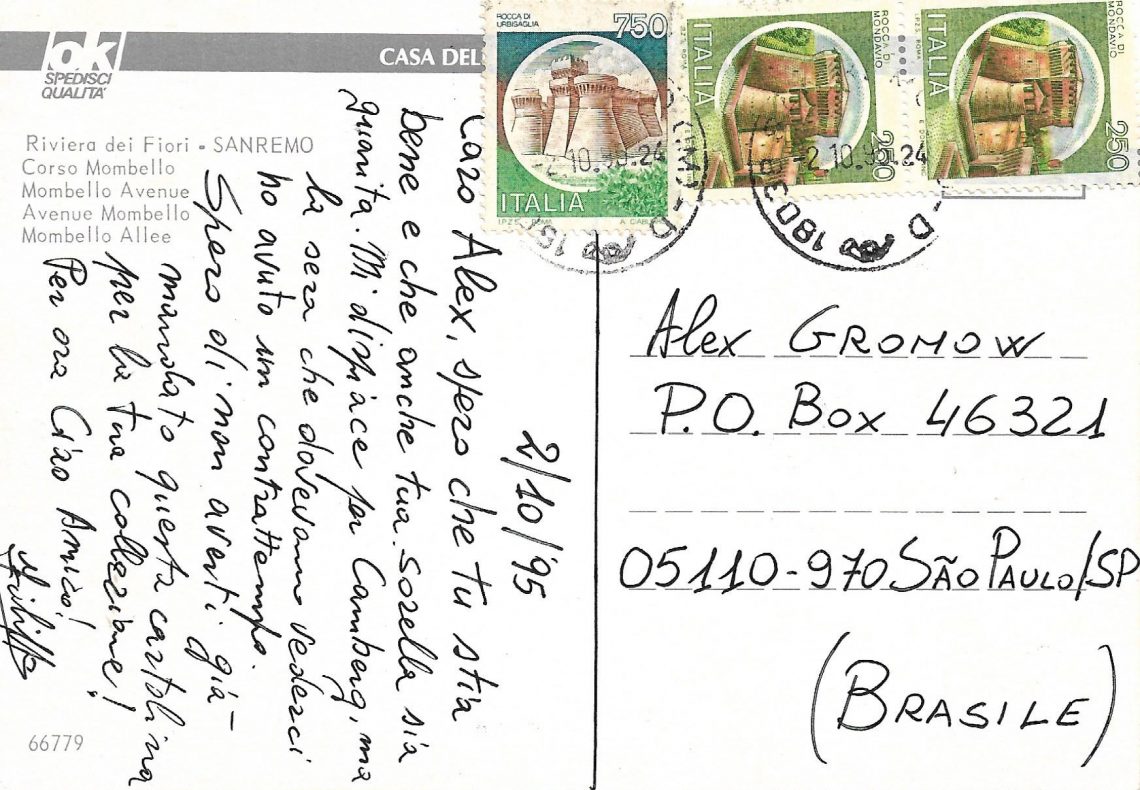 ok
SPEDISCI
QUALITA'
CASA DEL
Riviera dei Fiori - SANREMO
Corso Mombello
Mombello Avenue
Avenue Mombello
Mombello Allee
66779
2/10/'95
Caro Alex, spero che tu stia
bene e che anche tua sorella sia
guarita. Mi dispiace per Camberg, ma
la sera che dovevamo vederci
ho avuto un contrattempo.
Spero di non averti già
mandato questa cartolina
per la tua collezione!
Per ora Ciao Amico!
ROCCA DI
URBISAGLIA
750
ITALIA
I.P.Z.S. ROMA
ROCCA DI
MONDAVIO
250
ITALIA
ROCCA DI
MONDAVIO
250
ITALIA
I.P.Z.S. ROMA
Alex GROMOW
P.O. Box 46321
05110-970 SÃO PAULO/SP
(BRASILE)